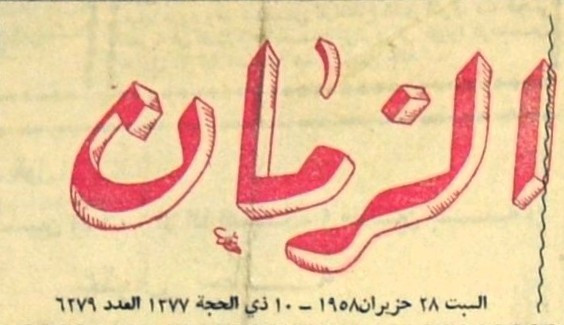 الزمان
السبت ٢٨ حزيران ١٩٥٨ - ١٠ ذي الحجة ١٢٧٧ العدد ٦٢٧٩